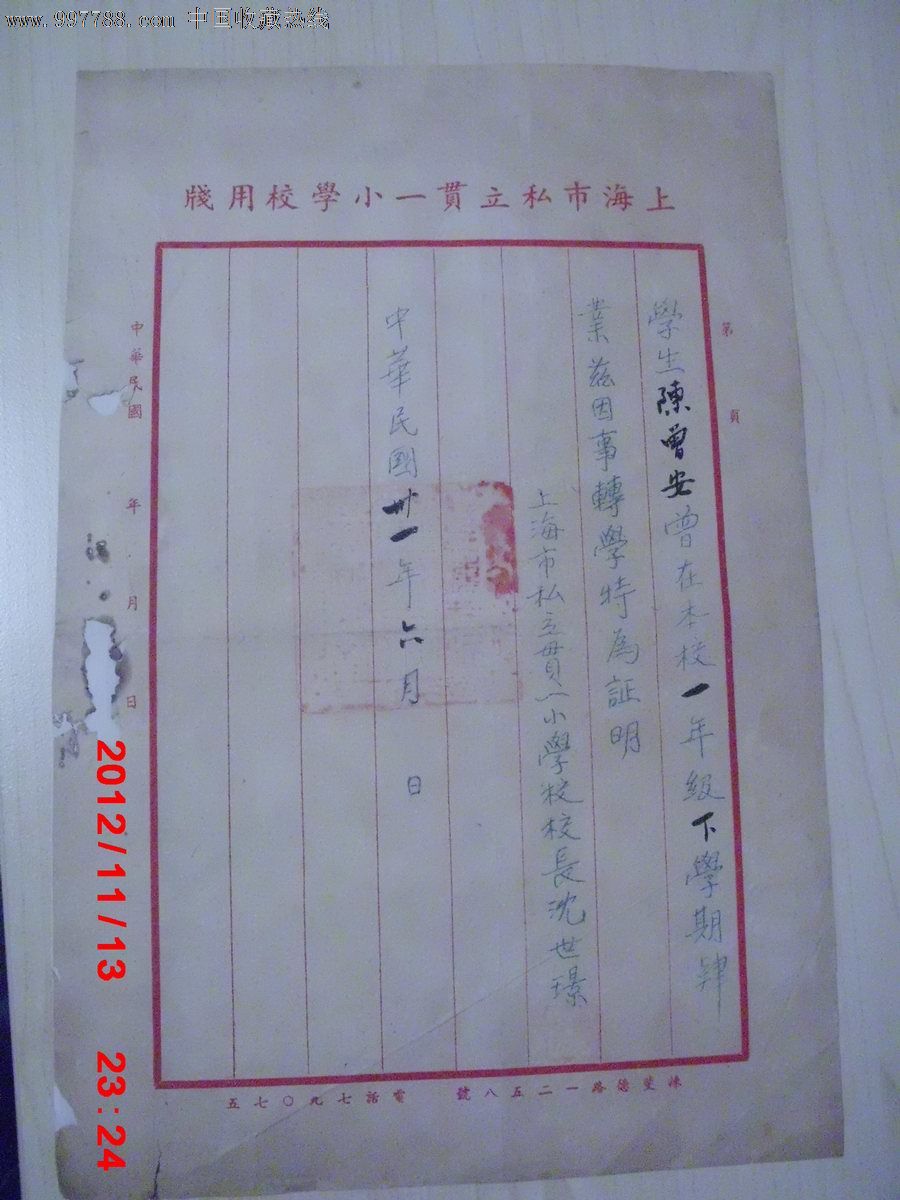 www.997788.com 中国收藏热线
上海市私立貫一小學校用牋
第 頁
學生陳曾安曾在本校一年級下學期肄
業茲因事轉學特為証明
上海市私立貫一小學校校長沈世璟
中華民國卅一年六月 日
中華民國 年 月 日
路一二五八號 電話七九〇七五
2012/11/13 23:24